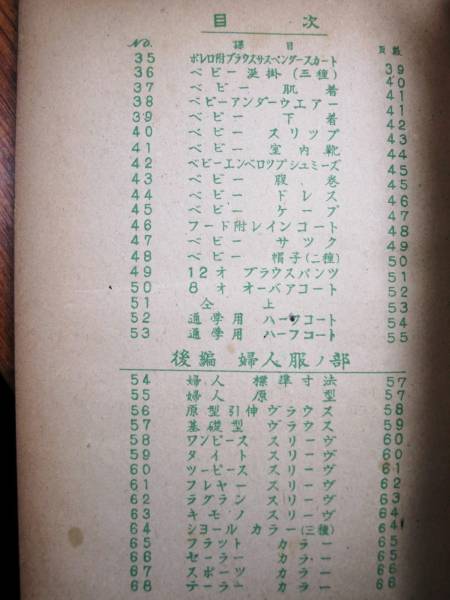 目 次
No. 課目 頁数
35 ボレロ附ブラウスサスペンダースカート 39
36 ベビー 涎掛(三種) 40
37 ベビー 肌着 41
38 ベビーアンダーウエアー 41
39 ベビー 下着 42
40 ベビー スリップ 43
41 ベビー 室内靴 44
42 ベビーエンベロップシュミーズ 45
43 ベビー 腹巻 45
44 ベビー ドレス 46
45 ベビー ケープ 47
46 フード附レインコート 48
47 ベビー サツク 49
48 ベビー 帽子(二種) 50
49 12オ ブラウスパンツ 51
50 8オ オーバアコート 52
51 仝上 53
52 通学用 ハーフコート 54
53 通学用 ハーフコート 55
後編 婦人服ノ部
54 婦人 標準寸法 57
55 婦人原型 57
56 原型引伸ヴラウス 58
57 基礎型 ヴラウス 59
58 ワンピース スリーヴ 60
59 タイト スリーヴ 60
60 ツーピース スリーヴ 61
61 フレヤー スリーヴ 62
62 ラグラン スリーヴ 63
63 キモノ スリーヴ 64
64 シヨール カラー(三種) 64
65 フラット カラー 65
66 セーラー カラー 65
67 スポーツ カラー 66
68 テーラー カラー 66